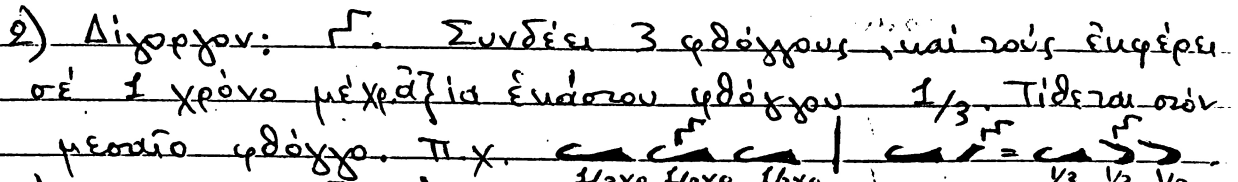 2) Δίγοργον: Συνδέει 3 φθόγγους, καί τούς ἐκφέρει
σέ 1 χρόνο μέ χρ. ἀξία ἑκάστου φθόγγου 1/3. Τίθεται στόν
μεσαῖο φθόγγο. π.χ. | =
1/3 1/3